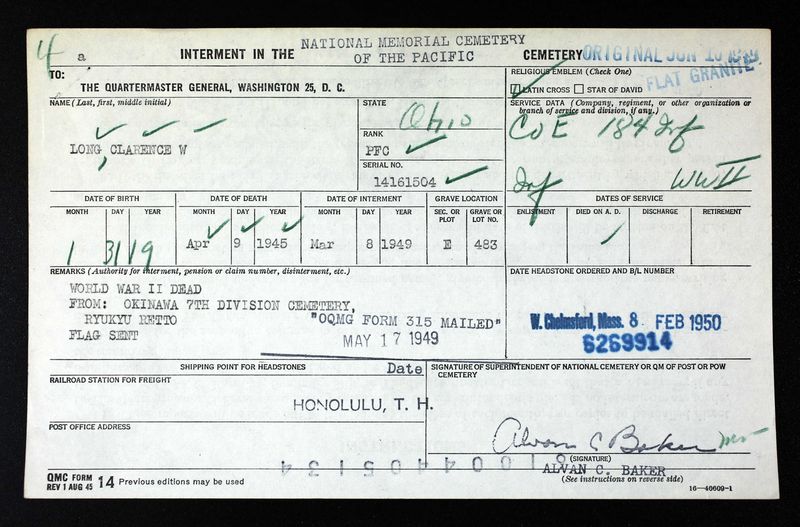 4 a INTERMENT IN THE NATIONAL MEMORIAL CEMETERY OF THE PACIFIC CEMETERY ORIGINAL JUN 10 1949
FLAT GRANITE
TO:
THE QUARTERMASTER GENERAL, WASHINGTON 25, D. C.
RELIGIOUS EMBLEM (Check One)
LATIN CROSS STAR OF DAVID
NAME (Last, first, middle initial)
LONG, CLARENCE W
STATE
Ohio
RANK
PFC
SERIAL NO.
14161504
SERVICE DATA (Company, regiment, or other organization or branch of service and division, if any.)
Co E 184 Inf
Inf WW II
DATE OF BIRTH DATE OF DEATH DATE OF INTERMENT GRAVE LOCATION DATES OF SERVICE
MONTH DAY YEAR MONTH DAY YEAR MONTH DAY YEAR SEC. OR PLOT GRAVE OR LOT NO. ENLISTMENT DIED ON A. D. DISCHARGE RETIREMENT
1 31 19 Apr 9 1945 Mar 8 1949 E 483
REMARKS (Authority for interment, pension or claim number, disinterment, etc.)
WORLD WAR II DEAD
FROM: OKINAWA 7TH DIVISION CEMETERY,
RYUKYU RETTO "OQMG FORM 315 MAILED"
FLAG SENT MAY 17 1949
DATE HEADSTONE ORDERED AND B/L NUMBER
W. Chelmsford, Mass. 8 FEB 1950
6269914
SHIPPING POINT FOR HEADSTONES Date
RAILROAD STATION FOR FREIGHT
HONOLULU, T. H.
POST OFFICE ADDRESS
SIGNATURE OF SUPERINTENDENT OF NATIONAL CEMETERY OR QM OF POST OR POW CEMETERY
Alvan C Baker
(SIGNATURE)
ALVAN C. BAKER
(See instructions on reverse side)
QMC FORM 14 Previous editions may be used
REV 1 AUG 45
16—40609-1